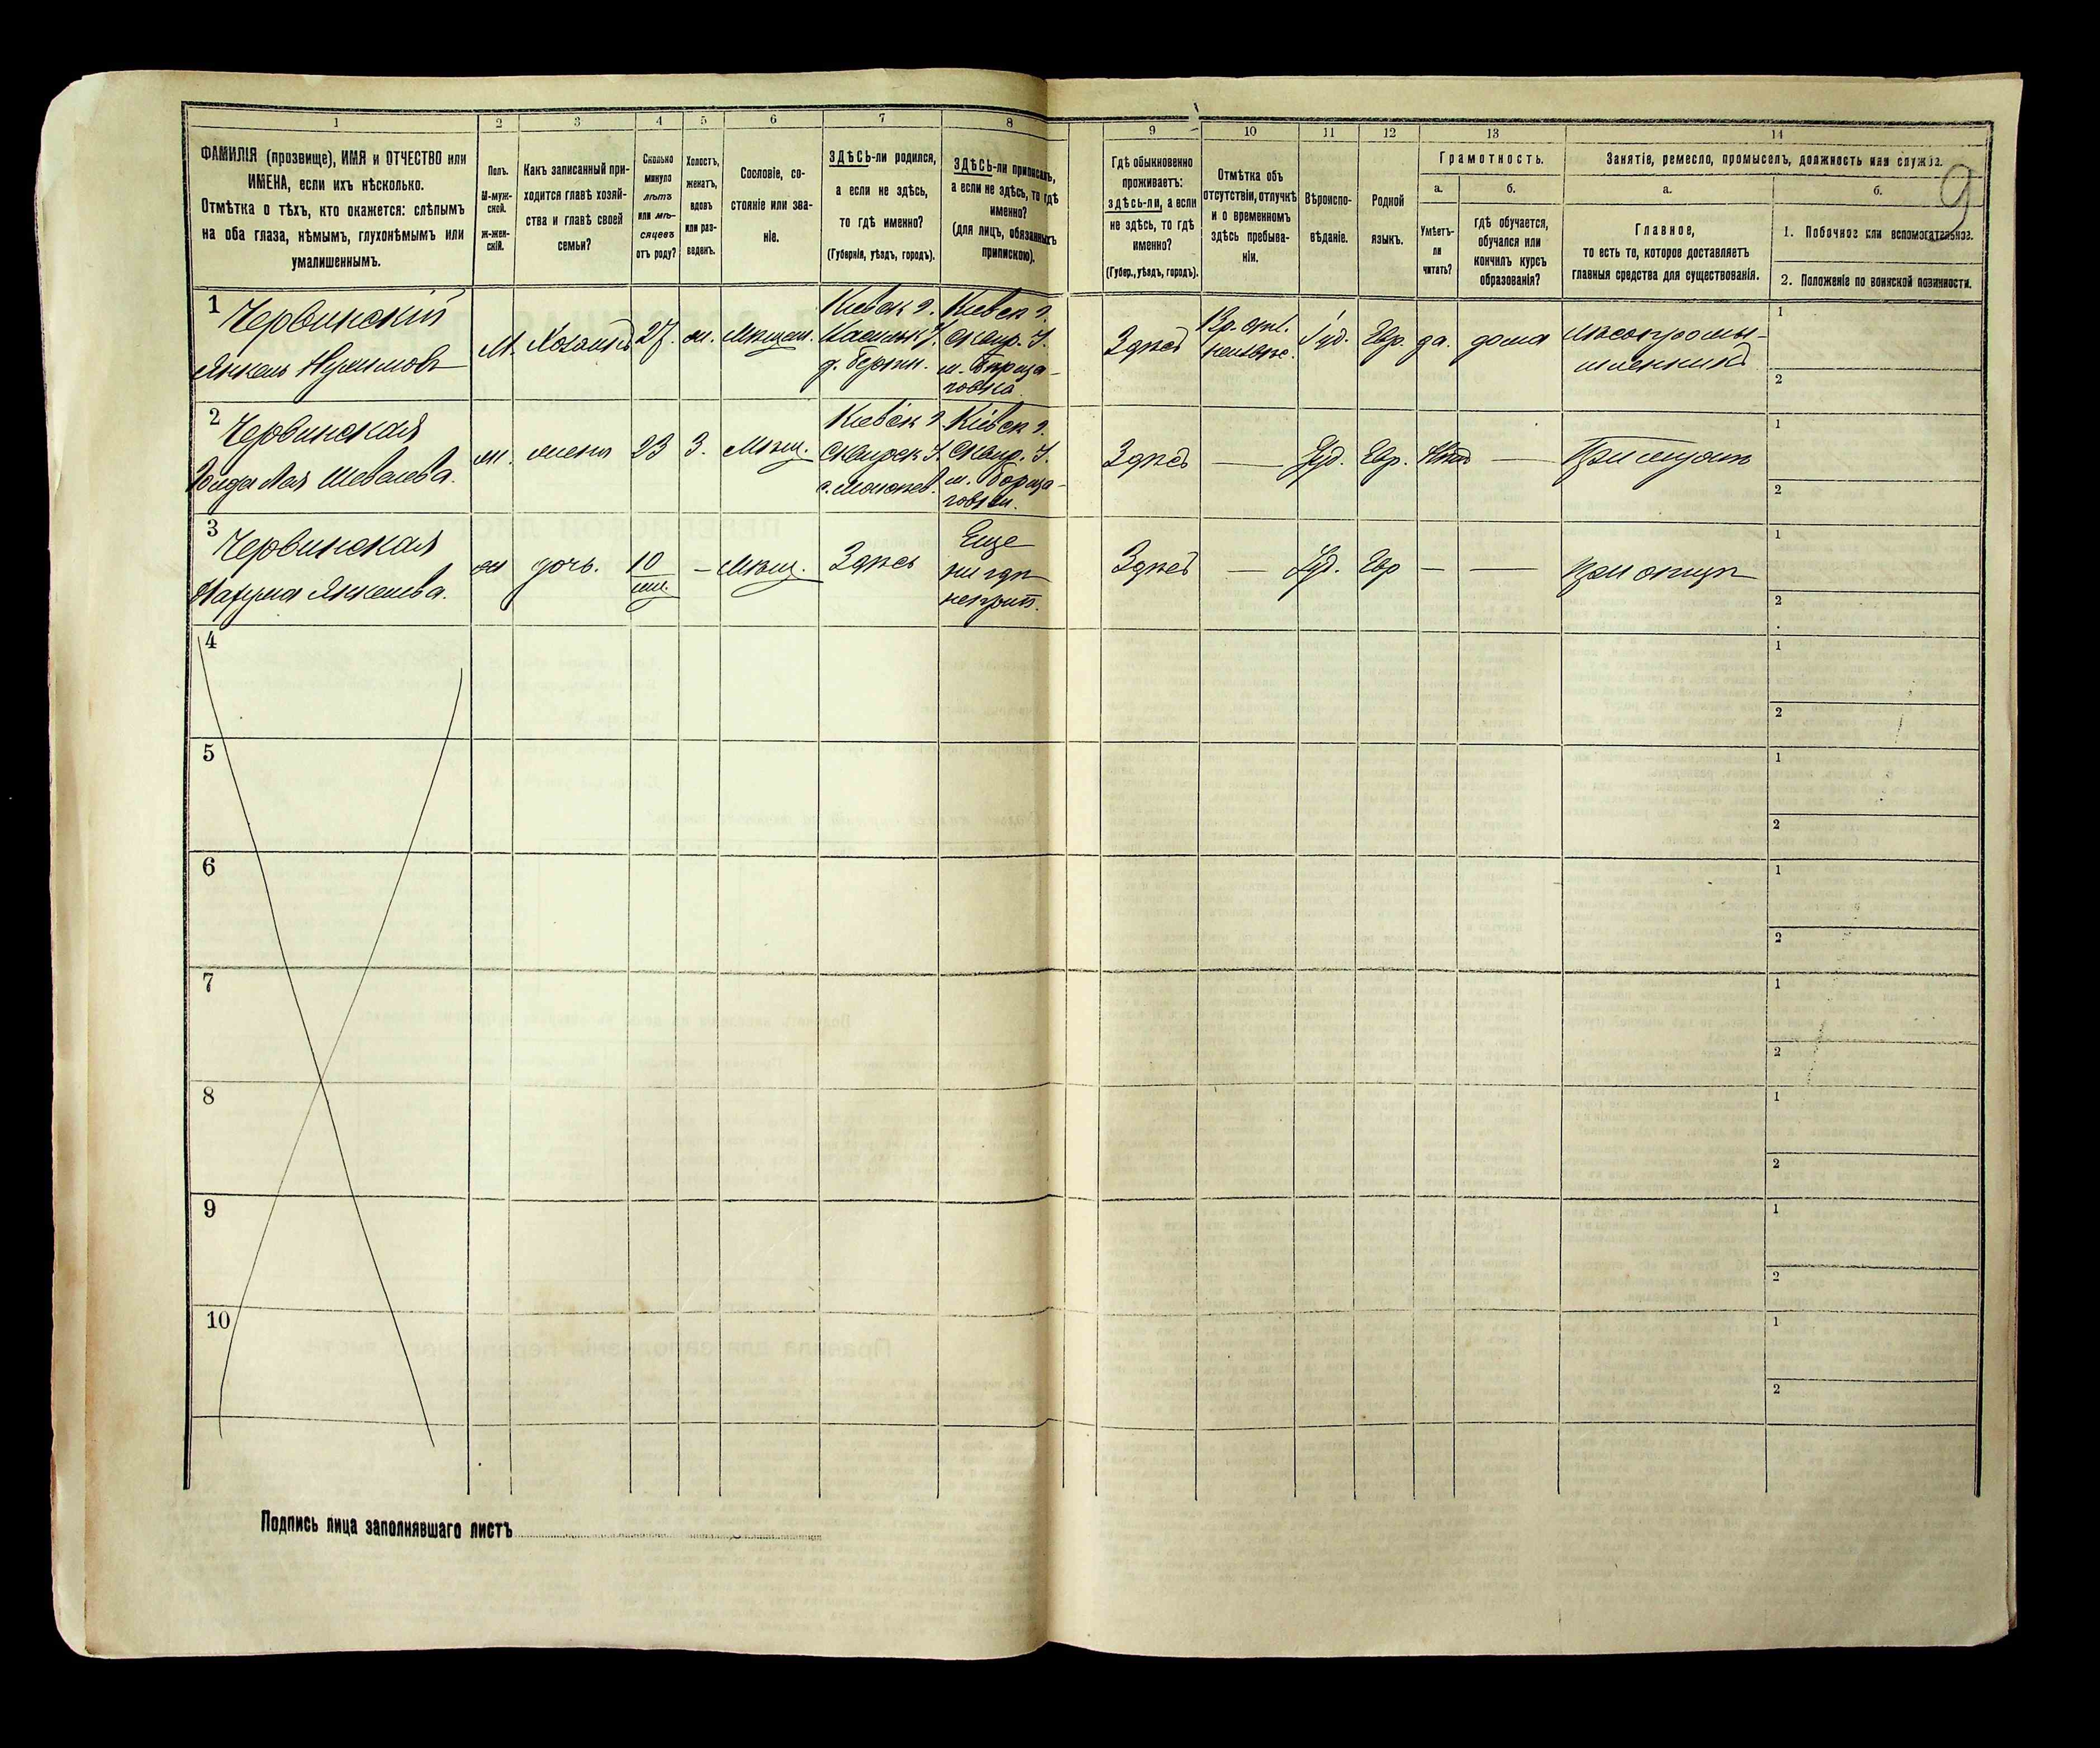 1 2 3 4 5 6 7 8 9 10 11 12 13 14
ФАМИЛІЯ (прозвище), ИМЯ и ОТЧЕСТВО или
ИМЕНА, если ихъ нѣсколько.
Отмѣтка о тѣхъ, кто окажется: слѣпымъ
на оба глаза, нѣмымъ, глухонѣмымъ или
умалишеннымъ.
Полъ.
М-муж-
ской.
Ж-жен-
скій.
Какъ записанный при-
ходится главѣ хозяй-
ства и главѣ своей
семьи?
Сколько
минуло
лѣтъ
или мѣ-
сяцевъ
отъ роду?
Холостъ,
женатъ,
вдовъ
или раз-
веденъ.
Сословіе, со-
стояніе или зва-
ніе.
ЗДѢСЬ-ли родился,
а если не здѣсь,
то гдѣ именно?
(Губернія, уѣздъ, городъ).
ЗДѢСЬ-ли приписанъ,
а если не здѣсь, то гдѣ
именно?
(для лицъ, обязанныхъ
припискою).
Гдѣ обыкновенно
проживаетъ:
здѣсь-ли, а если
не здѣсь, то гдѣ
именно?
(Губер., уѣздъ, городъ).
Отмѣтка объ
отсутствіи, отлучкѣ
и о временномъ
здѣсь пребыва-
ніи.
Вѣроиспо-
вѣданіе.
Родной
языкъ.
Грамотность.
а.
б.
Умѣетъ-
ли
читать?
гдѣ обучается,
обучался или
кончилъ курсъ
образованія?
Занятіе, ремесло, промыселъ, должность или служба.
9
а.
б.
Главное,
то есть то, которое доставляетъ
главныя средства для существованія.
1. Побочное или вспомогательное.
2. Положеніе по воинской повинности.
1
Червинскій
Янкель
М. Хозяинъ 27. Мѣщан.
Кіевск г.
д.
Кіевск г.
Сквир. У.
Здѣсь
Іуд. Евр. да. дома
лѣсопромы-
шленникъ
1
2
2
Червинская
жена 23 З. Мѣщ.
Кіевск г
Сквирск У.
Кіевск г.
Сквир. У.
Здѣсь — Іуд. Евр. Нѣтъ —
При мужѣ
1
2
3
Червинская
Янкелева.
дочь. 10 — Мѣщ. Здѣсь
Еще
ни гдѣ
неприп.
Здѣсь — Іуд. Евр — —
при отцѣ
1
2
4
1
2
5
1
2
6
1
2
7
1
2
8
1
2
9
1
2
10
1
2
Подпись лица заполнявшаго листъ